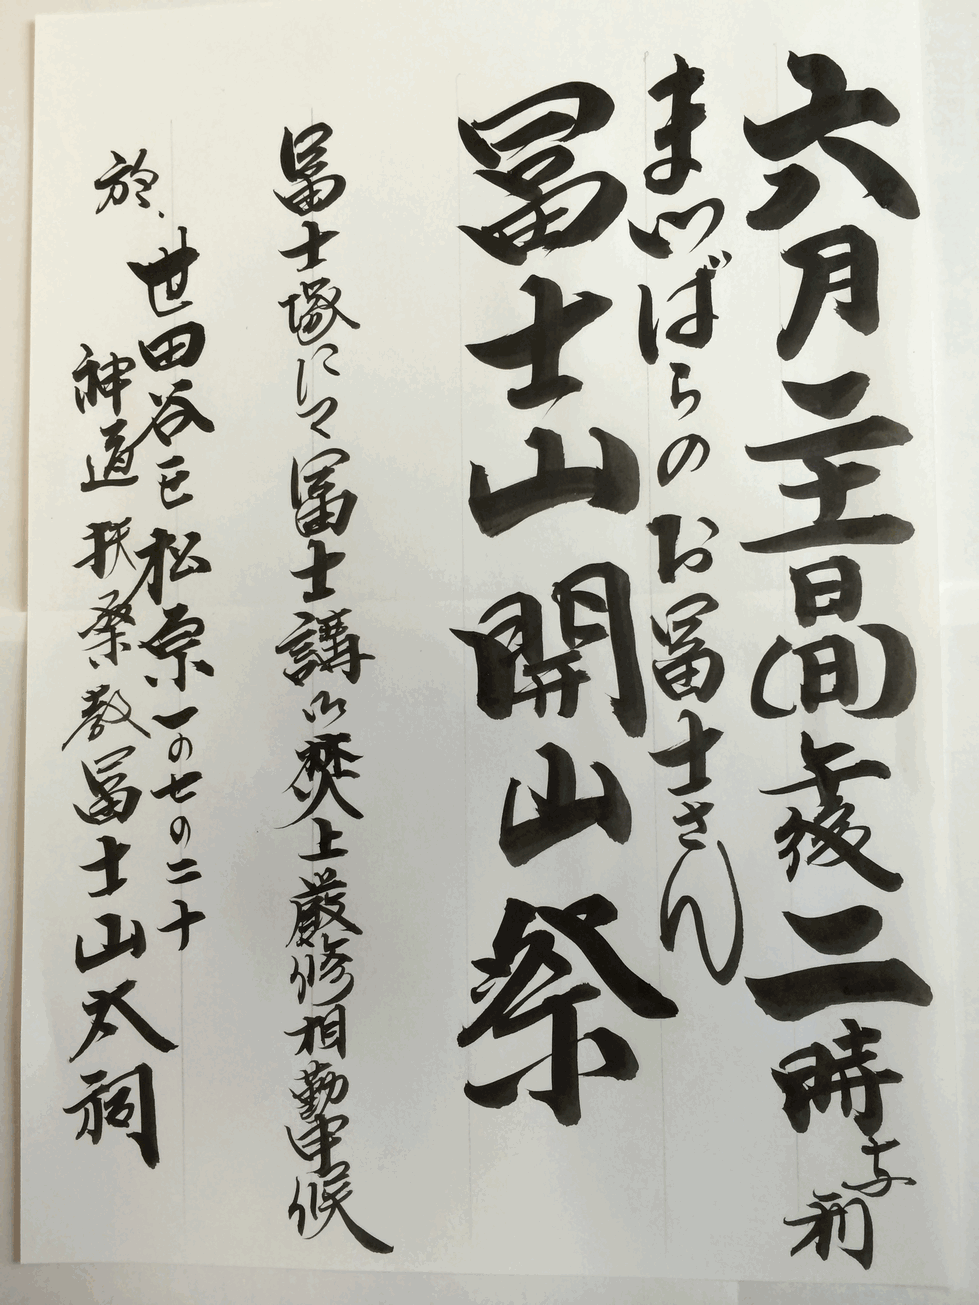 六月二十一日(日)午後二時与利
まつばらのお冨士さん
冨士山開山祭
冨士塚にて冨士講御焚上厳修相勤申候
於、世田谷区松原一の七の二十
神道扶桑教冨士山太祠